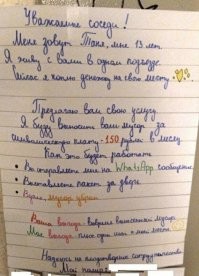 Уважаемые соседи!
Меня зовут Таня, мне 13 лет.
Я живу с вами в одном подъезде.
Сейчас я коплю денежку на свою мечту
Предлагаю вам свою услугу.
Я буду выносить ваш мусор за
символическую плату - 150 рублей в месяц.
Как это будет работать
• Вы отправляете мне на WhatsApp сообщение.
• Выставляете пакет за дверь.
• мусор убран.
Ваша выгода: вовремя вынесенный мусор.
Моя выгода: плюс один шаг к моей мечте.
Надеюсь на плодотворное сотрудничество.
Мой номер: